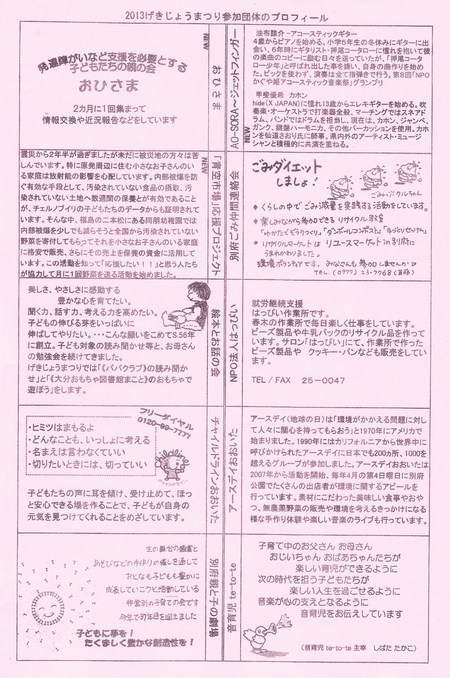 2013げきじょうまつり参加団体のプロフィール
発達障がいなど支援を必要とする
子どもたちの親の会
おひさま
2カ月に1回集まって
情報交換や近況報告などをしています
NEW
おひさま
NEW
AC-SORA～ジェットフィンガー
4歳からピアノを始める。小学5年生の冬休みにギターに出
会い、6年時にギタリスト・押尾コータローに憧れを抱いて彼
の楽曲のコピーに励む日々を送っていたが、「押尾コータ
ロー少年」と呼ばれた出した事を嫌い、自身の曲作りを始め
た。ピックを使わず、演奏は全て指弾きで行う。第8回「NPO
かぐや姫アコースティック音楽祭」グランプリ
甲斐優希 カホン
hide(X JAPAN)に憧れ13歳からエレキギターを始める。吹
奏楽・オーケストラで打楽器全般、マーチングではスネアドラ
ム、バンドではドラムを担当し、現在は、カホン、ジャンベ、パ
ンク、鍵盤ハーモニカ、その他パーカッションを使用。カホ
ンを仙道さおり氏に師事。県内外のアーティスト・ミュージ
シャンと積極的に共演を重ねる。
震災から2年半が過ぎましたが未だに被災地の方々は苦
しんでいます。特に原発周辺に住む小さなお子さんのい
る家庭は放射能の影響を心配しています。内部被爆を防
ぐ有効な手段として、汚染されていない食品の摂取、汚
染されていない土地へ数週間の保養とが有効であること
が、チェルノブイリの子どもたちのデータからも証明されて
います。そんな中、福島の二本松にある同朋幼稚園では
内部被爆を少しでも減らそうと全国から汚染されていない
野菜を寄付してもらってそれを小さなお子さんのいる家庭
に格安で販売、さらにその売上を保養の資金に活用して
います。この活動を知って「応援したい!!」と思う人たち
が協力して月に1回野菜を送る活動を始めました。
NEW
「青空市場」応援プロジェクト
別府ごみ仲間連絡会
ごみダイエット
しましょ!
くらしの中でごみ減量を実践する活動をしています。
楽しみながら参加できるリサイクル教室
リサイクルマーケットはリユースマーケットin別府に
うまれかわりました。
美しさ、やさしさに感動する
豊かな心を育てたい。
聞く力、話す力、考える力を高めたい。
子どもの伸びる芽をいっぱいに
伸ばしてやりたい。・・・こんな願いをこめてS.56年
に創立。子ども対象の読み聞かせ等と、お母さん
の勉強会を続けてきました。
げきじょうまつりでは「《パパクラブ》の読み聞か
せ」と「《大分おもちゃ図書館まこと》のおもちゃで
遊ぼう」をします。
絵本とお話の会
NPO法人はっぴぃ
就労継続支援
はっぴぃ作業所です。
春木の作業所で毎日楽しく仕事をしています。
ビーズ製品や牛乳パックのリサイクル品を作って
います。サロン「はっぴぃ」にて、作業所で作った
ビーズ製品や クッキー・パンなども販売をしてい
ます。
TEL/FAX 25-0047
フリーダイヤル
0120-99-7777
・ヒミツはまもるよ
・どんなことも、いっしょに考える
・名まえは言わなくていい
・切りたいときには、切っていい
子どもたちの声に耳を傾け、受け止めて、ほっ
と安心できる場を作ることで、子どもが自身の
元気を見つけてくれることをめざしています。
チャイルドラインおおいた
アースデイおおいた
アースデイ(地球の日)は「環境がかかえる問題に対し
て人々に関心を持ってもらおう」と1970年にアメリカで
始まりました。1990年にはカリフォルニアから世界中に
呼びかけられたアースデイに日本でも200カ所、1000を
越えるグループが参加しました。アースデイおおいたは
2007年から活動を開始、毎年4月の第4日曜日に別府
公園でたくさんの出店者が環境に関するアピールを
行っています。素材にこだわった美味しい食事やおや
つ、無農薬野菜の販売や環境を考えるきっかけになる
種な手作り体験や楽しい音楽のライブも行っています。
生の舞台の鑑賞と
あそびなどの手作りの催しを通し
おとなも子どもも豊かに
成長していこうと活動している
非営利の子育ての会です
子どもに夢を!
たくましく豊かな創造性を!
別府親と子の劇場
音育児te-to-te
子育て中のお父さん お母さん
おじいちゃん おばあちゃんたちが
楽しい育児ができるように
次の時代を担う子どもたちが
楽しい人生を過ごせるように
音楽が心の支えとなるように
音育児をお伝えしています
(音育児 te-to-te 主宰 しばた たかこ)